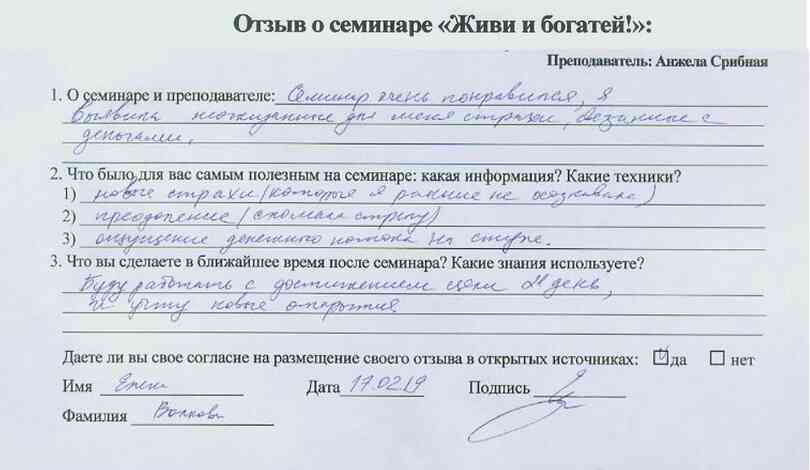 Отзыв о семинаре «Живи и богатей!»:
Преподаватель: Анжела Срибная
1. О семинаре и преподавателе: Семинар очень понравился, я
выявила неожиданные для меня страхи, связанные с
деньгами.
2. Что было для вас самым полезным на семинаре: какая информация? Какие техники?
1) новые страхи (которые я раньше не осознавала)
2) преодоление (сломала стрелу)
3) ощущение денежного потока на стуле.
3. Что вы сделаете в ближайшее время после семинара? Какие знания используете?
Буду работать с достижением цели 21 день,
и учту новые открытия
Даете ли вы свое согласие на размещение своего отзыва в открытых источниках: да нет
Имя Елена Дата 17.02.19 Подпись
Фамилия Волкова